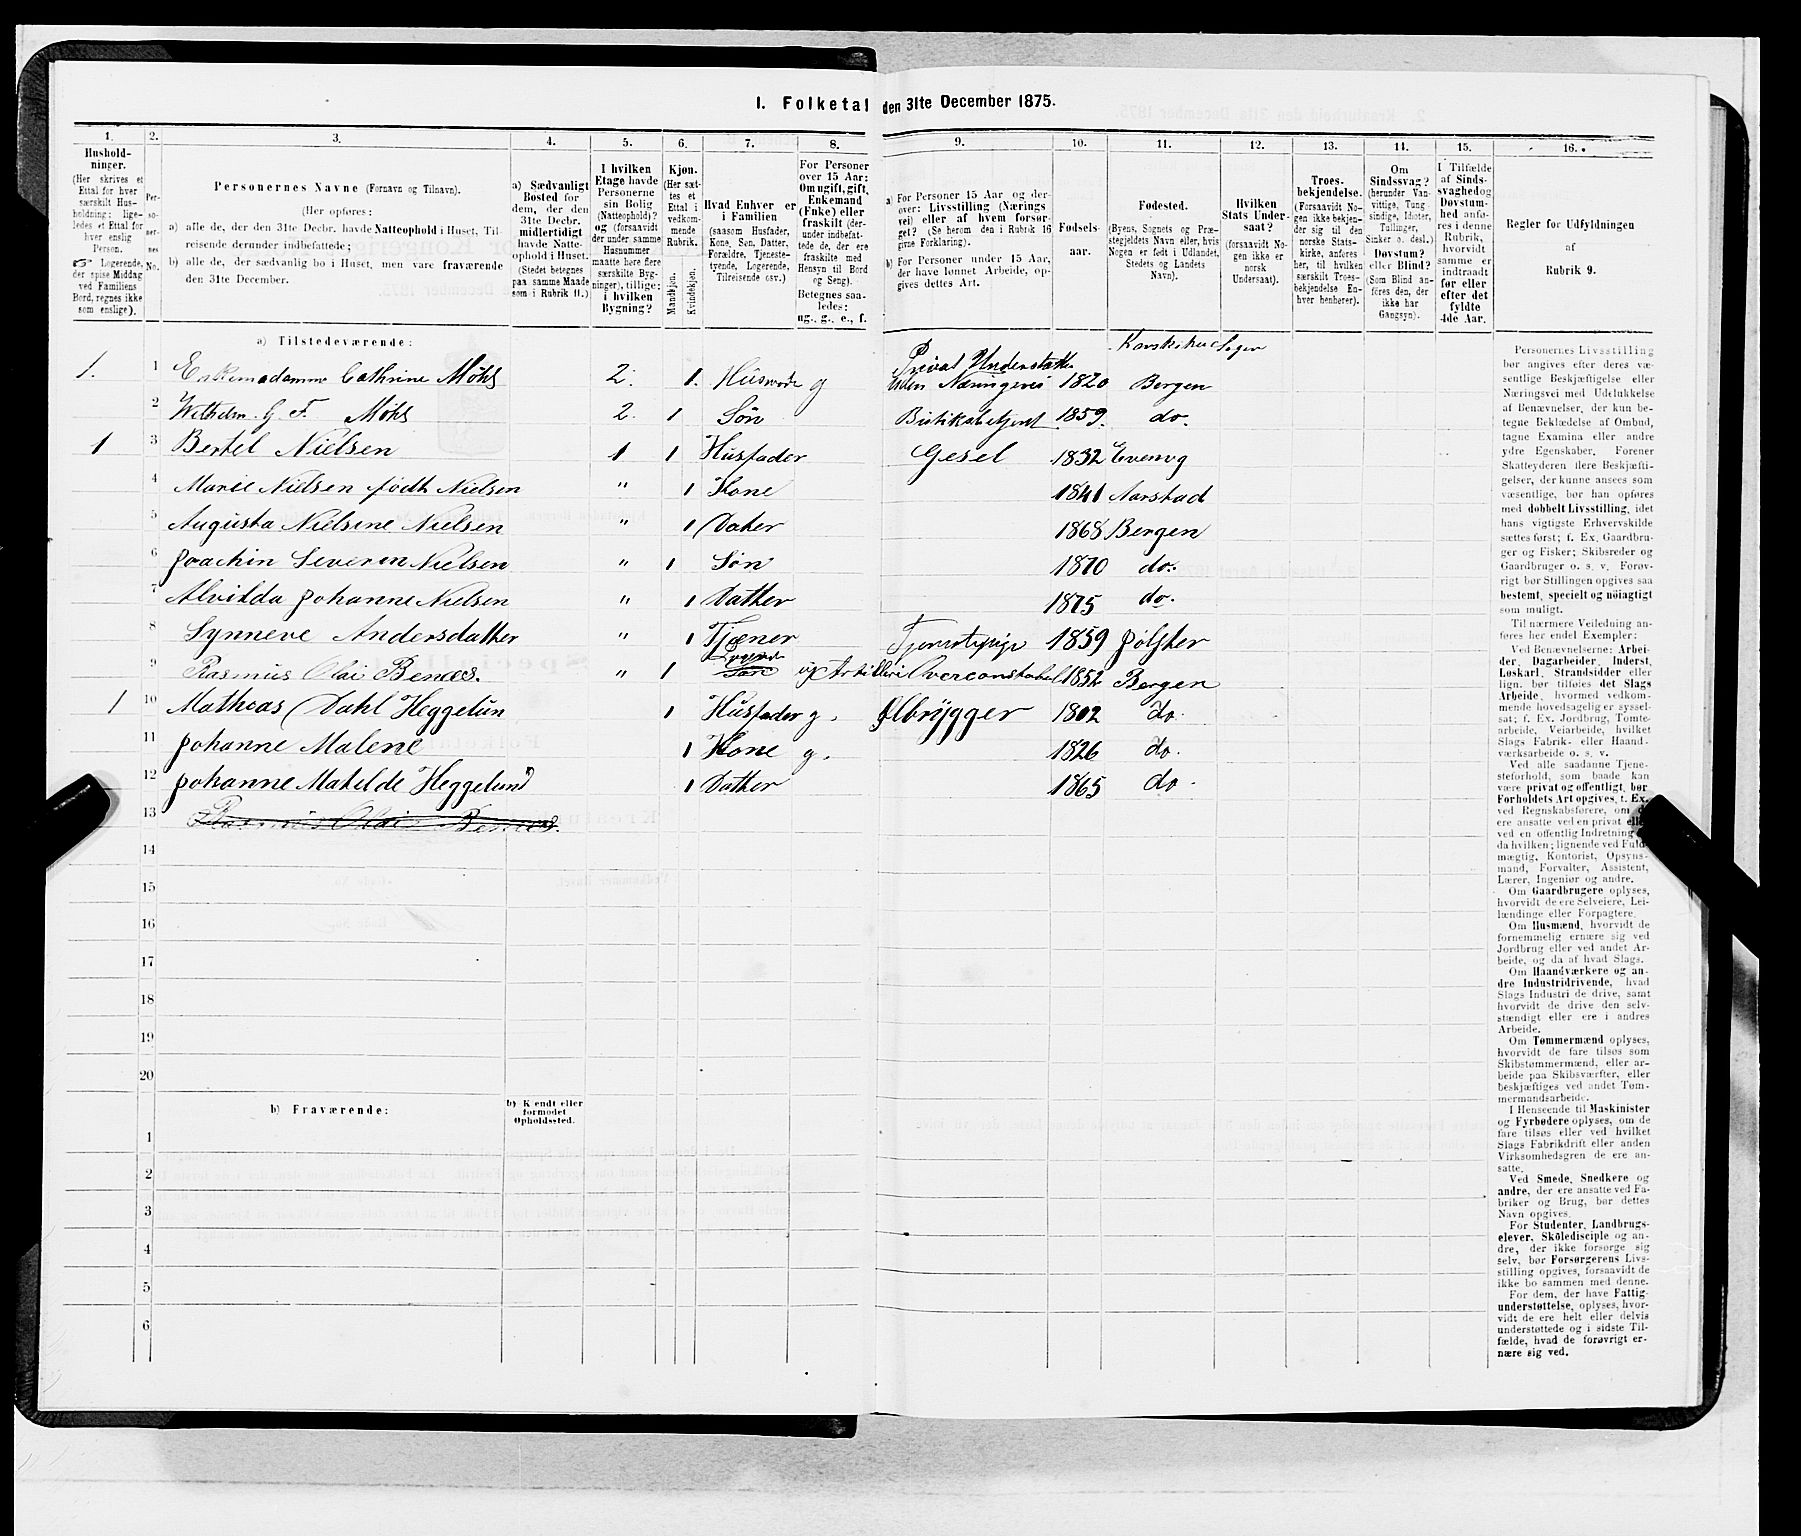 I. Folketal den 31te December 1875.
1. 2. 3. 4. 5. 6. 7. 8. 9. 10. 11. 12. 13. 14. 15. 16.
Hushold-
ninger.
(Her skrives et
Ettal for hver
særskilt Hus-
holdning; lige-
ledes et Ettal for
hver enslig
Person.
☞ Logerende,
der spise Middag
ved Familiens
Bord, regnes ikke
som enslige).
Per-
so-
ner-
nes
No.
Personernes Navne (Fornavn og Tilnavn).
(Her opføres:
a) alle de, der den 31te Decbr. havde Natteophold i Huset, Til-
reisende derunder indbefattede;
b) alle de, der sædvanlig bo i Huset, men vare fraværende
den 31te December.
a) Sædvanligt
Bosted for
dem, der den
31te Decbr.
midlertidigt
havde Natte-
ophold i Huset.
(Stedet betegnes
paa samme Maade
som i Rubrik 11.)
I hvilken
Etage havde
Personerne
sin Bolig
(Natteophold)?
og (forsaavidt
der under samme
Husnummer
maatte høre flere
særskilte Byg-
ninger), tillige:
i hvilken
Bygning?
Kjøn.
(Her sæt-
tes et
Ettal i
vedkom-
mende
Rubrik.
Mandkjøn.
Kvindekjøn.
Hvad Enhver er
i Familien
(saasom Husfader,
Kone, Søn, Datter,
Forældre, Tjeneste-
tyende, Logerende,
Tilreisende osv.)
For Personer
over 15 Aar:
Om ugift, gift,
Enkemand
(Enke) eller
fraskilt (der-
under indbefat-
tede de, der ere
fraskilte med
Hensyn til Bord
og Seng).
Betegnes saa-
ledes:
ug., g., e., f.
a) For Personer 15 Aar og der-
over: Livsstilling (Nærings
vei) eller af hvem forsør-
get? (Se herom den i Rubrik 16
givne Forklaring).
b) For Personer under 15 Aar,
der have lønnet Arbeide, op-
gives dettes Art.
Fødsels-
aar.
Fødested.
(Byens, Sognets og Præ-
stegjeldets Navn eller, hvis
Nogen er født i Udlandet,
Stedets og Landets
Navn).
Hvilken
Stats Under-
saat?
(forsaavidt No-
gen ikke er
norsk
Undersaat).
Troes-
bekjendelse.
(Forsaavidt No-
gen ikke bekjen-
der sig til den
norske Stats-
kirke, anføres
her, til hvilken
særskilt Troes-
bekjendelse En-
hver henhører).
Om
Sindssvag?
(herunder Van-
vittige, Tung
sindige, Idioter,
Tullinger,
Sinker o. desl.)
Døvstum?
eller Blind?
(Som Blind an-
føres den, der
ikke har
Gangsyn).
I Tilfælde
af Sinds-
svaghed og
Døvstum-
hed anfø-
res i denne
Rubrik,
hvorvidt
samme er
indtraadt
før eller
efter det
fyldte
4de Aar.
Regler for Udfyldningen
af
Rubrik 9.
a) Tilstedeværende:
1. 1 Enkemadamme Cathrine Møhl 2. 1. g Privat Understøttet uden Næringsvei 1820 Bergen
2 Wilhelm G. F. Møhl 2. 1 Søn 1859. do.
1 3 Bertel Nielsen 1 1 Husfader Gesel 1832 Evenvg
4 Marie Nielsen født Nielsen " 1 Kone 1841 Aarstad
5 Augusta Nielsine Nielsen " 1 Dater 1868 Bergen
6 Joachin Severin Nielsen " 1 Søn 1870 do.
7 Alvilda Johanne Nielsen " 1 Datter 1875 do.
8 Synneve Andersdatter " 1 Tjæner Tjenestepige 1859 Jølster
9 Rasmus Olai Benæs. " 1 ug Artilleri Overconstabel 1852 Bergen
1 10 Matheas Dahl Heggelun 1 Husfader g. Ølbrygger 1802 do.
11 Johanne Malene 1 Kone g. 1826 do.
12 Johanne Matilde Heggelund 1 Datter 1865 do.
13 Rasmus Olai Benæs.
14
15
16
17
18
19
20
b) Fraværende:
b) Kjendt eller
formodet
Opholdssted.
1
2
3
4
5
6
Personernes Livsstilling
bør angives efter deres væ-
sentlige Beskjæftigelse eller
Næringsvei med Udelukkelse
af Benævnelser, der kun be-
tegne Beklædelse af Ombud,
tagne Examina eller andre
ydre Egenskaber. Forener
Skatteyderen flere Beskjæfti-
gelser, der kunne ansees som
væsentlige, bør han opføres
med dobbelt Livsstilling, idet
hans vigtigste Erhvervskilde
sættes først; f. Ex. Gaardbru-
ger og Fisker; Skibsreder og
Gaardbruger o. s. v. Forøv-
rigt bør Stillingen opgives saa
bestemt, specielt og nöiagtigt
som muligt.
Til nærmere Veiledning an-
føres her endel Exempler:
Ved Benævnelserne: Arbei-
der, Dagarbeider, Inderst,
Løskarl, Strandsidder eller
lign. bør tilføies det Slags
Arbeide, hvormed vedkom-
mende hovedsagelig er syssel-
sat; f. Ex. Jordbrug, Tomte-
arbeide, Veiarbeide, hvilket
Slags Fabrik- eller Haand-
værksarbeide o. s. v.
Ved alle saadanne Tjene-
steforhold, som baade kan
være privat og offentligt, bør
Forholdets Art opgives, t. Ex.
ved Regnskabsførere, om de
ere ansatte ved en privat eller
ved en offentlig Indretning og
da hvilken; lignende ved Fuld-
mægtig, Kontorist, Opsyns-
mand, Forvalter, Assistent,
Lærer, Ingeniør og andre.
Om Gaardbrugere oplyses,
hvorvidt de ere Selveiere, Lei-
lændinge eller Forpagtere.
Om Husmænd, hvorvidt de
fornemmelig ernære sig ved
Jordbrug eller ved andet Ar-
beide, og da af hvad Slags.
Om Haandværkere og an-
dre Industridrivende, hvad
Slags Industri de drive, samt
hvorvidt de drive den selv-
stændigt eller ere i andres
Arbeide.
Om Tømmermænd oplyses,
hvorvidt de fare tilsøs som
Skibstømmermænd, eller ar-
beide paa Skibsværfter, eller
beskjæftiges ved andet Tøm-
mermandsarbeide.
I Henseende til Maskinister
og Fyrbødere oplyses, om de
fare tilsøs eller ved hvilket
Slags Fabrikdrift eller anden
Virksomhedsgren de ere an-
satte.
Ved Smede, Snedkere og
andre, der ere ansatte ved Fa-
briker og Brug, bør dettes
Navn opgives.
For Studenter, Landbrugs-
elever, Skoledisciple og an-
dre, der ikke forsørge sig
selv, bør Forsørgerens Livs-
stilling opgives, forsaavidt de
ikke bo sammen med denne.
For dem, der have Fattig-
understøttelse, oplyses, hvor-
vidt de ere helt eller delvis
understøttede og i sidste Til-
fælde, hvad de forøvrigt er-
nære sig ved.